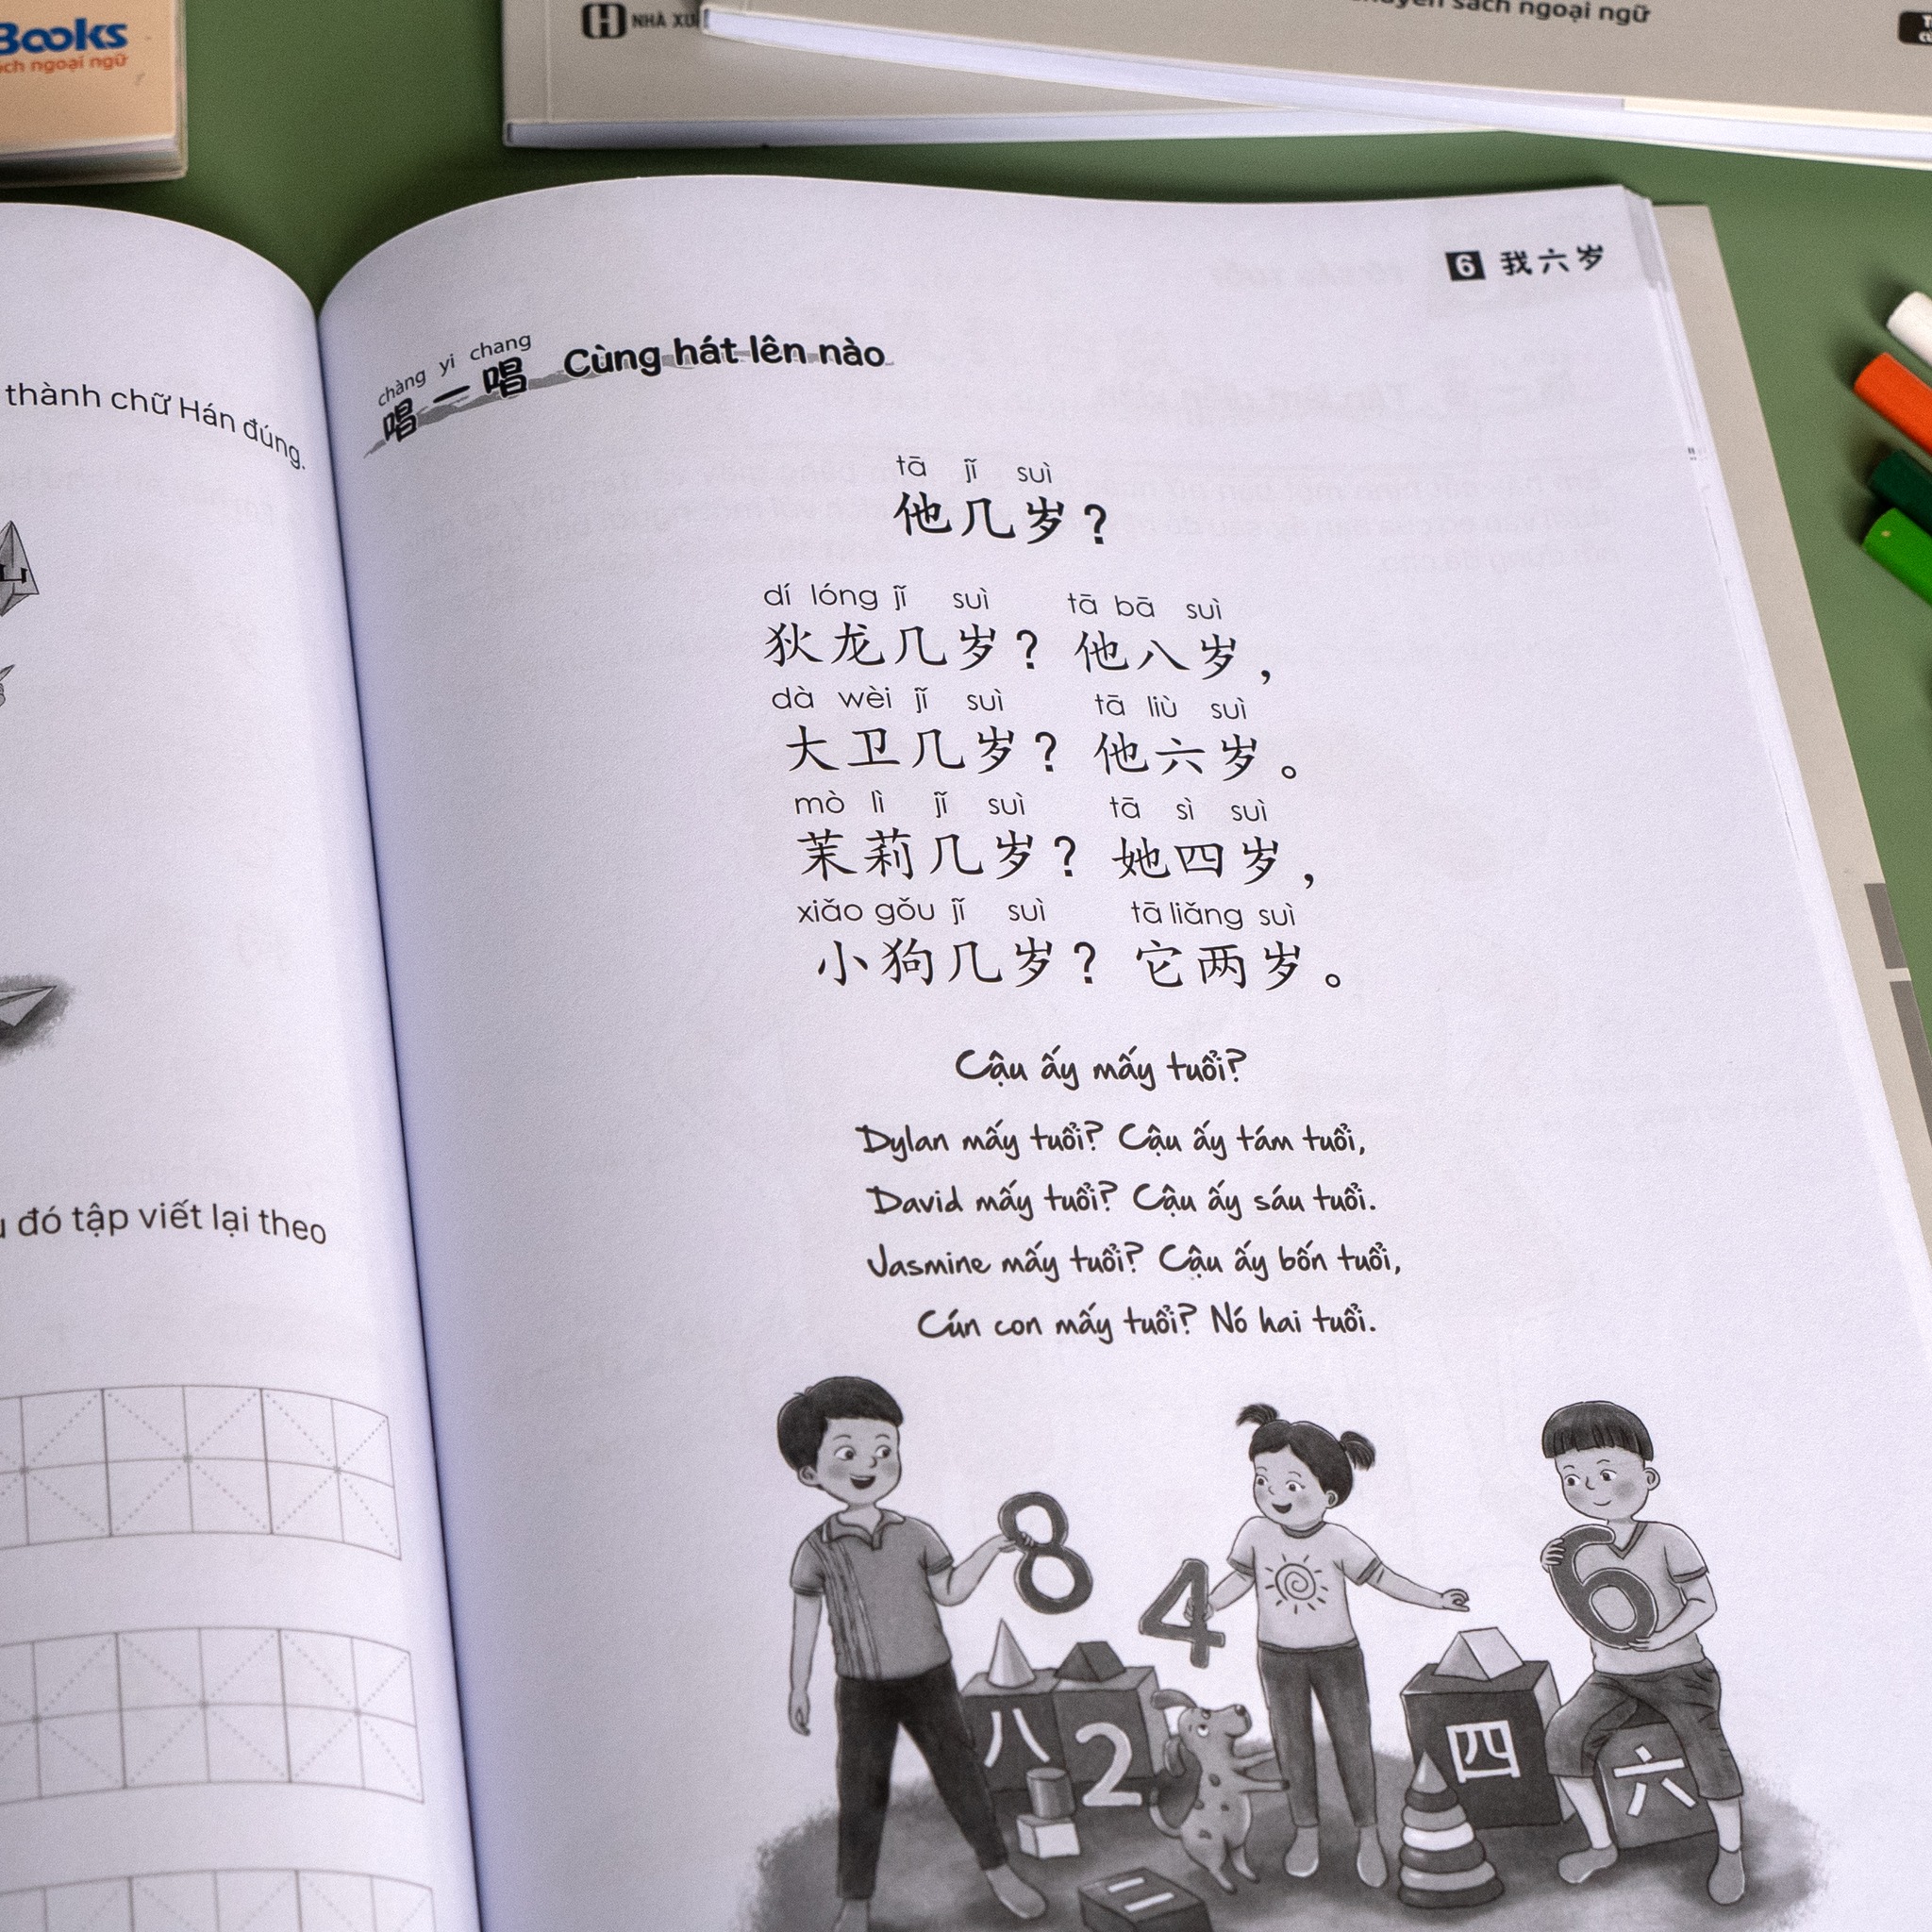 Books
ách ngoại ngữ
NHÀ XU
sách ngoại ngữ
thành chữ Hán đúng.
đó tập viết lại theo
6 我六岁
chàng yi chang
唱一唱 Cùng hát lên nào
tā jǐ suì
他几岁?
dí lóng jǐ suì tā bā suì
狄龙几岁? 他八岁,
dà wèi jǐ suì tā liù suì
大卫几岁? 他六岁。
mò lì jǐ suì tā sì suì
茉莉几岁? 她四岁,
xiǎo gǒu jǐ suì tā liǎng suì
小狗几岁? 它两岁。
Cậu ấy mấy tuổi?
Dylan mấy tuổi? Cậu ấy tám tuổi,
David mấy tuổi? Cậu ấy sáu tuổi.
Jasmine mấy tuổi? Cậu ấy bốn tuổi,
Cún con mấy tuổi? Nó hai tuổi.
8
4
6
八
2
四
六
二